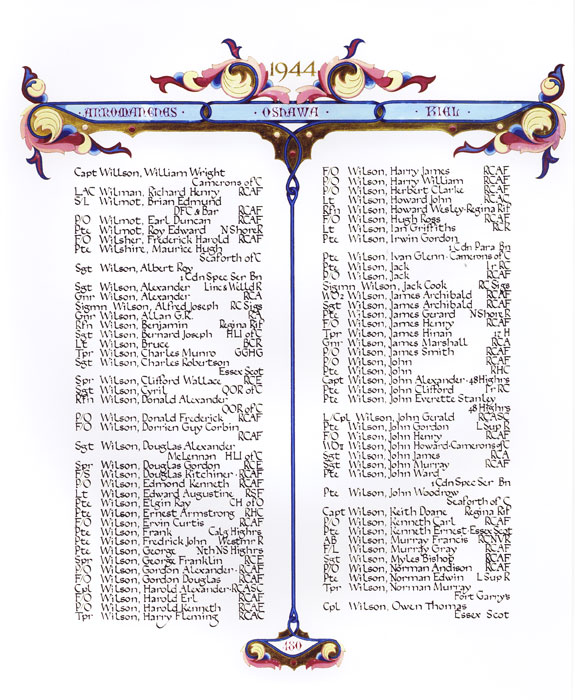 1944
ARROMANCHES · OSHAWA · KIEL
Capt Willson, William Wright
Camerons of C
LAC Wilman, Richard Henry RCAF
S/L Wilmot, Brian Edmund
DFC & Bar RCAF
P/O Wilmot, Earl Duncan RCAF
Pte Wilmot, Roy Edward N Shore R
F/O Wilsher, Frederick Harold RCAF
Pte Wilshire, Maurice Hugh
Seaforth of C
Sgt Wilson, Albert Roy
1 Cdn Spec Ser Bn
Sgt Wilson, Alexander Linc & Welld R
Gnr Wilson, Alexander RCA
Sigmn Wilson, Alfred Joseph RC Sigs
Gnr Wilson, Allan G.R. RCA
Rfn Wilson, Benjamin Regina Rif
Sgt Wilson, Bernard Joseph HLI of C
Lt Wilson, Bruce BCR
Tpr Wilson, Charles Munro GGHG
Sgt Wilson, Charles Robertson
Essex Scot
Spr Wilson, Clifford Wallace RCE
Sgt Wilson, Cyril QOR of C
Rfn Wilson, Donald Alexander
QOR of C
P/O Wilson, Donald Frederick RCAF
F/O Wilson, Dorrien Guy Corbin
RCAF
Sgt Wilson, Douglas Alexander
McLennan HLI of C
Spr Wilson, Douglas Gordon RCE
F/S Wilson, Douglas Kitchiner RCAF
P/O Wilson, Edmond Kenneth RCAF
Lt Wilson, Edward Augustine RSF
Pte Wilson, Elgin Ray CH of O
Pte Wilson, Ernest Armstrong RHC
F/O Wilson, Ervin Curtis RCAF
Pte Wilson, Frank Calg Highrs
Pte Wilson, Fredrick John Westmr R
Pte Wilson, George Nth NS Highrs
Spr Wilson, George Franklin RCE
P/O Wilson, Gordon Alexander RCAF
F/O Wilson, Gordon Douglas RCAF
Cpl Wilson, Harold Alexander RCASC
F/O Wilson, Harold Erl RCAF
P/O Wilson, Harold Kenneth RCAF
Tpr Wilson, Harry Fleming RCAC
F/O Wilson, Harry James RCAF
P/O Wilson, Harry William RCAF
P/O Wilson, Herbert Clarke RCAF
Lt Wilson, Howard John RCAC
Rfn Wilson, Howard Wesley Regina Rif
F/O Wilson, Hugh Ross RCAF
Lt Wilson, Ian Griffiths RCR
Pte Wilson, Irwin Gordon
1 Cdn Para Bn
Pte Wilson, Ivan Glenn Camerons of C
Pte Wilson, Jack Ir RC
P/O Wilson, Jack RCAF
Sigmn Wilson, Jack Cook RC Sigs
WO2 Wilson, James Archibald RCAF
Sgt Wilson, James Archibald RCAF
Pte Wilson, James Gerard N Shore R
F/O Wilson, James Henry RCAF
Tpr Wilson, James Hinan 17 H
Gnr Wilson, James Marshall RCA
P/O Wilson, James Smith RCAF
P/O Wilson, John RCAF
Pte Wilson, John RHC
Capt Wilson, John Alexander 48 Highrs
Pte Wilson, John Clifford Ir RC
Pte Wilson, John Everette Stanley
48 Highrs
L/Cpl Wilson, John Gerald RCASC
Pte Wilson, John Gordon L Sup R
F/O Wilson, John Henry RCAF
WO2 Wilson, John Howard Camerons of C
Sgt Wilson, John James RCA
Sgt Wilson, John Murray RCAF
Pte Wilson, John Ward
1 Cdn Spec Ser Bn
Pte Wilson, John Woodrow
Seaforth of C
Capt Wilson, Keith Doane Regina Rif
P/O Wilson, Kenneth Carl RCAF
Pte Wilson, Kenneth Ernest Essex Scot
AB Wilson, Murray Francis RCNVR
F/L Wilson, Murrdy Gray RCAF
Sgt Wilson, Myles Bishop RCAF
P/O Wilson, Norman Andison RCAF
Pte Wilson, Norman Edwin L Sup R
Tpr Wilson, Norman Murray
Fort Garrys
Cpl Wilson, Owen Thomas
Essex Scot
480